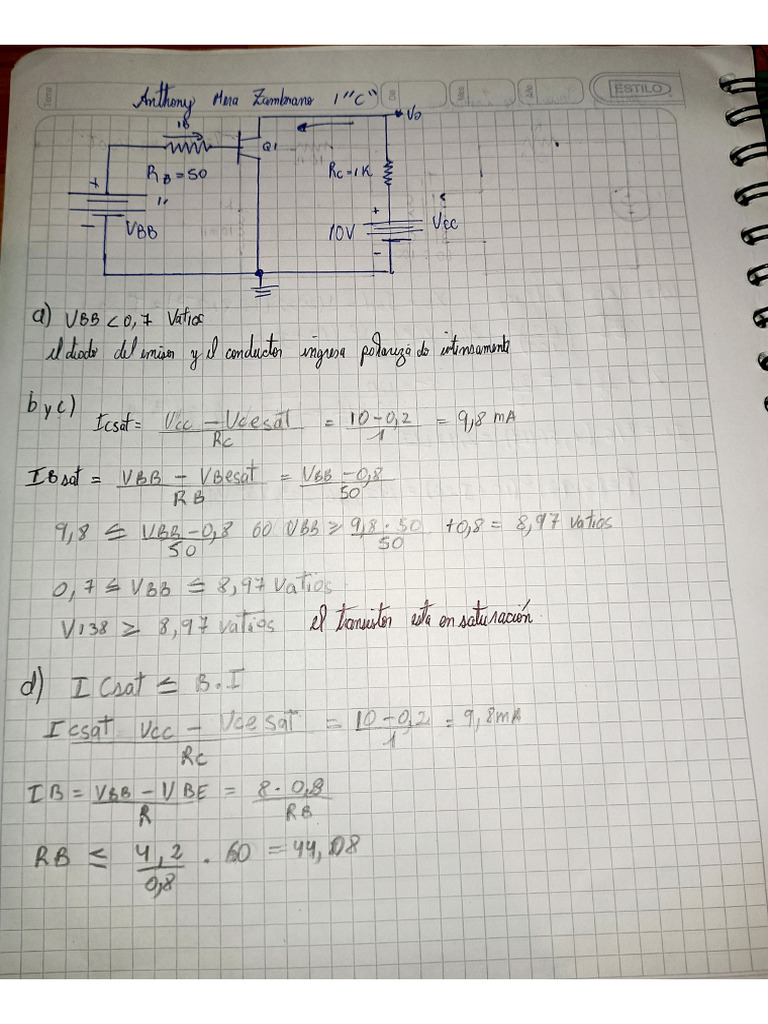 Tema
Día
Mes
Año
ESTILO
Anthony Mera Zambrano 1"C"
IB
Q1
Vo
RB=50
Rc=1K
+
VBB
-
+
10V
Vcc
-
a) VBB < 0,7 Vatios
el diodo del emisor y el conductor ingresa polarizado intensamente
b y c) Icsat = Vcc - Vcesat / Rc = 10-0,2 / 1 = 9,8 mA
IBsat = VBB - VBesat / RB = VBB - 0,8 / 50
9,8 ≤ VBB - 0,8 / 50 60 VBB ≥ 9,8 · 50 / 50 + 0,8 = 8,97 vatios
0,7 ≤ VBB ≤ 8,97 Vatios
V138 ≥ 8,97 vatios el transistor esta en saturación.
d) ICsat ≤ B.I
Icsat Vcc - Vcesat / Rc = 10-0,2 / 1 = 9,8mA
IB = VBB - VBE / R = 8 · 0,8 / RB
RB ≤ 4,2 / 0,8 . 60 = 44,08